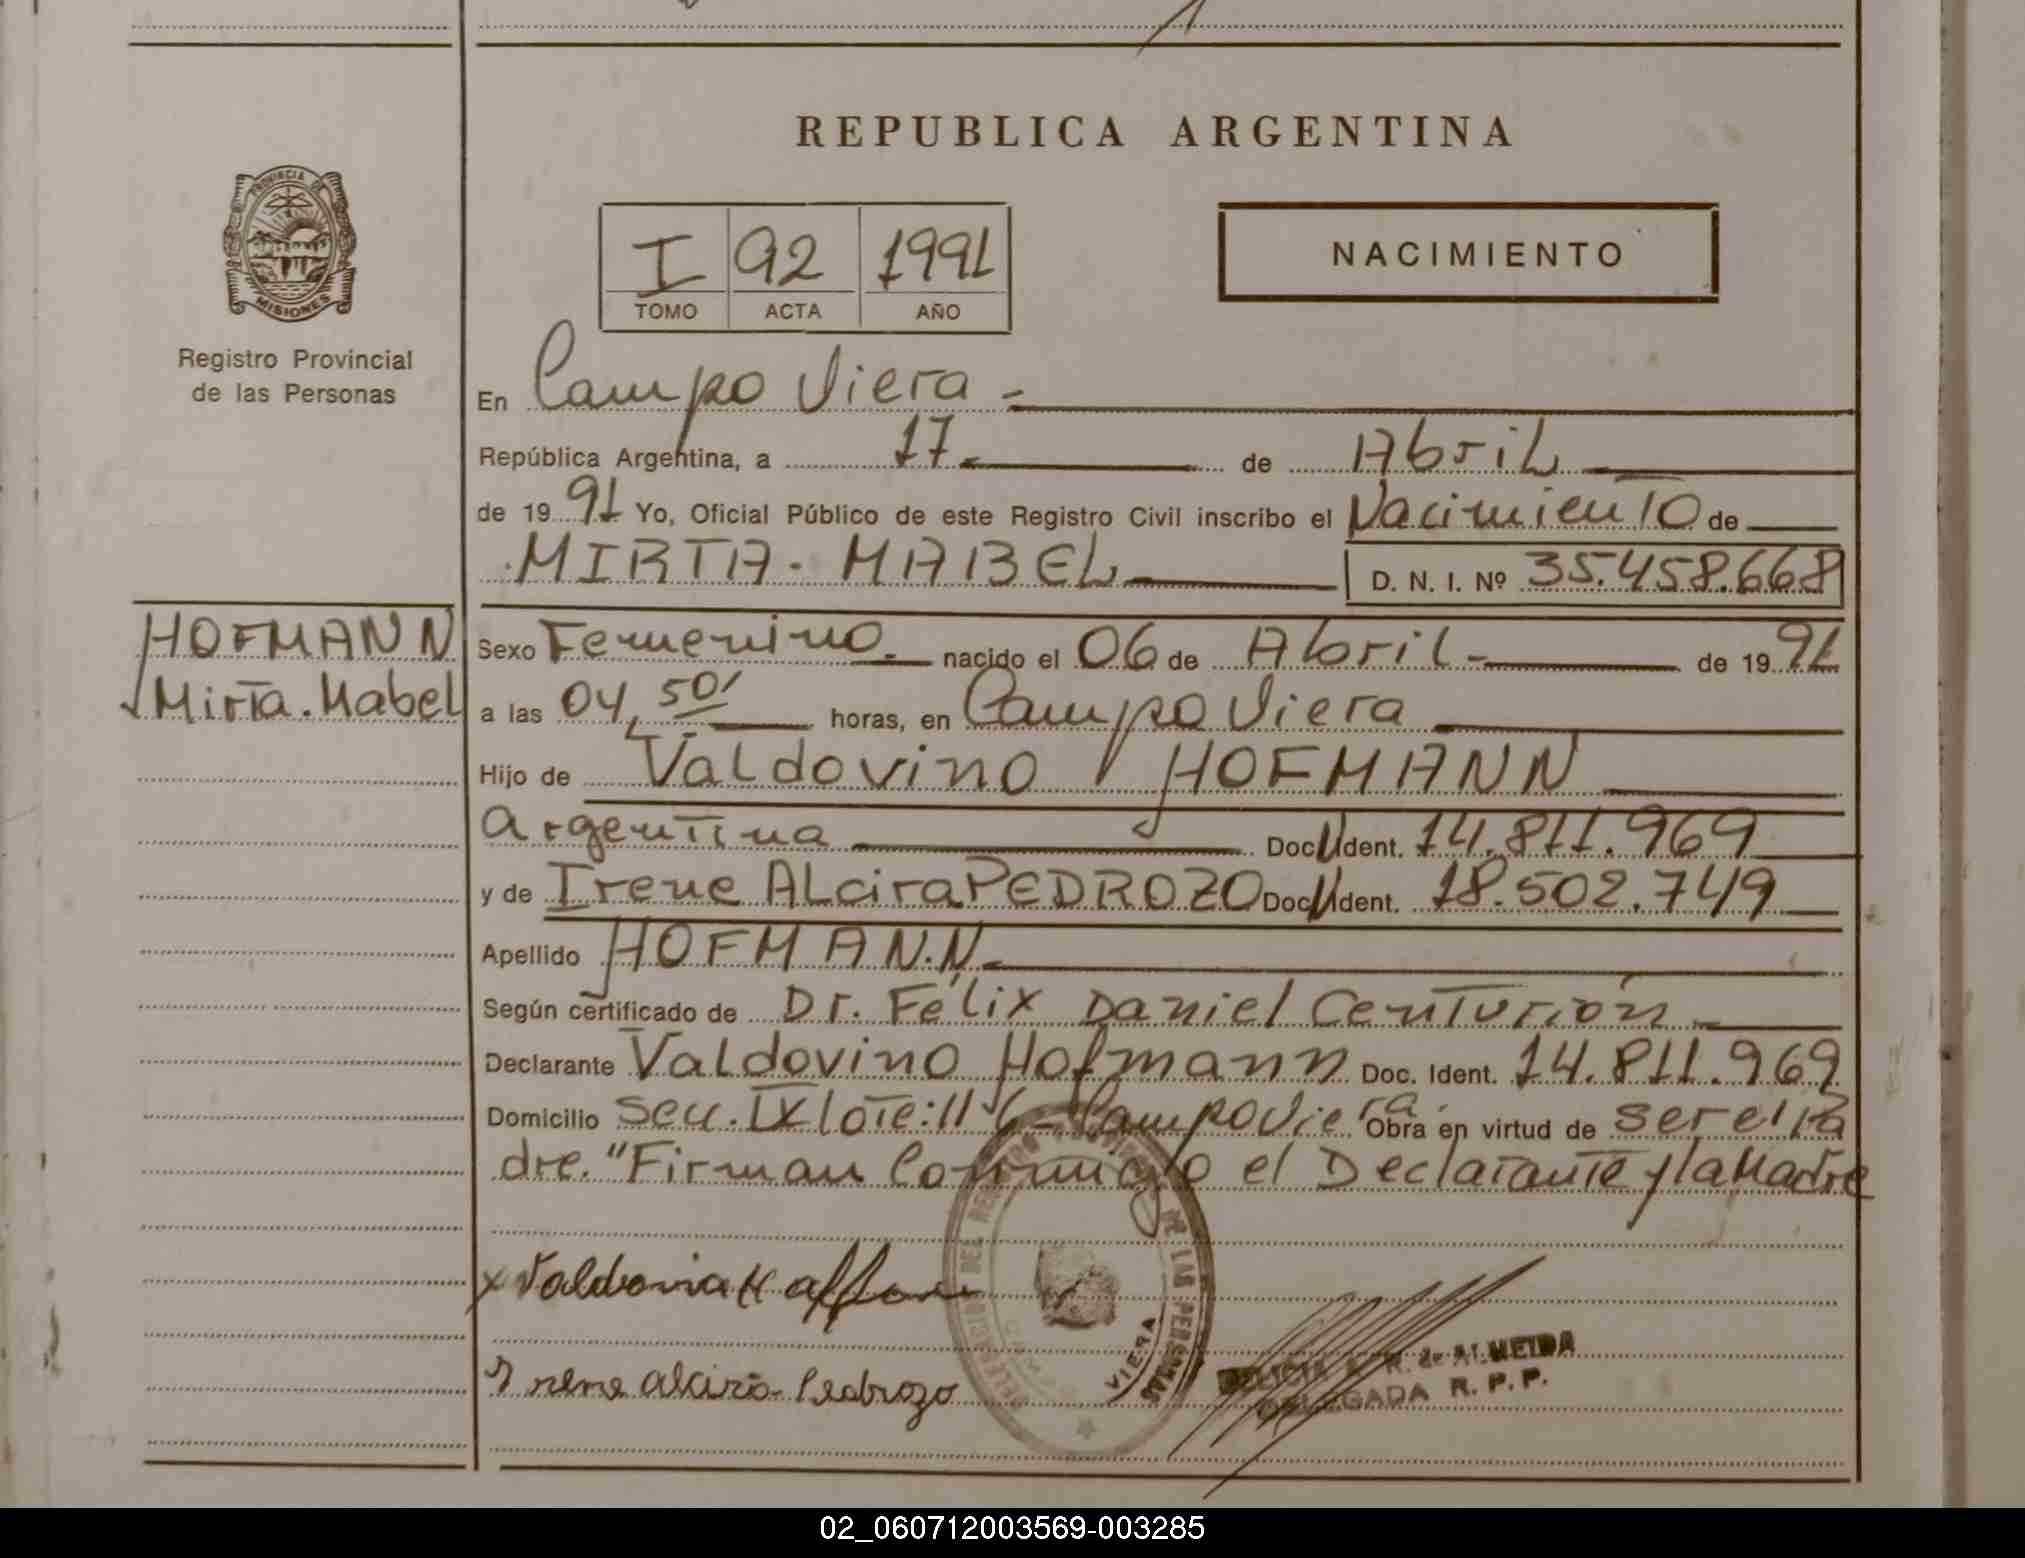 REPUBLICA ARGENTINA
PROVINCIA DE
MISIONES
Registro Provincial
de las Personas
I 92 1991
TOMO ACTA AÑO
NACIMIENTO
En Campo Viera -
República Argentina, a 17- de Abril
de 1991 Yo, Oficial Público de este Registro Civil inscribo el Nacimiento de
MIRTA. MABEL D. N. I. Nº 35.458.668
HOFMANN
Mirta. Mabel
Sexo Femenino. nacido el 06 de Abril - de 1991
a las 04,50' horas, en Campo Viera
Hijo de Valdovino HOFMANN
Argentina Doc. Ident. 14.811.969
y de Irene ALcira PEDROZO Doc. Ident. 18.502.749
Apellido HOFMANN.
Según certificado de Dr. Félix Daniel Centurión
Declarante Valdovino Hofmann Doc. Ident. 14.811.969
Domicilio Secc. IX lote: 116 - Campo Viera. Obra en virtud de ser el Pa
dre. "Firman Conmigo el Declarante y la Madre
x Valdovino Hoffman
Irene alcira Pedrozo
DEL REGISTRO DE LAS PERSONAS
VIERA
DELICIA R. de ALMEIDA
DELEGADA R. P. P.
02_060712003569-003285